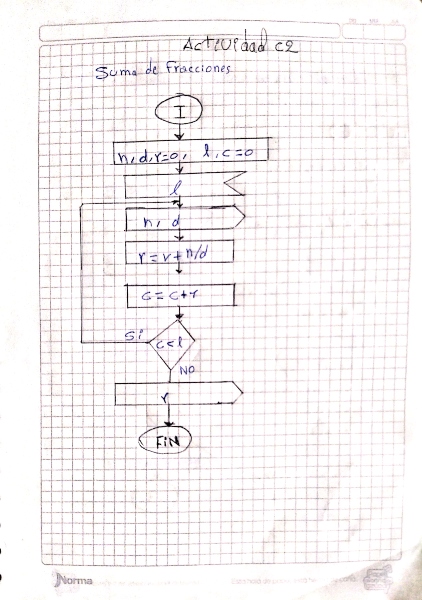 Actividad C2
Suma de Fracciones
I
n, d, r=0, l, c=0
l
n, d
r=r+n/d
c=c+r
Si
c<l
NO
r
FiN
Norma